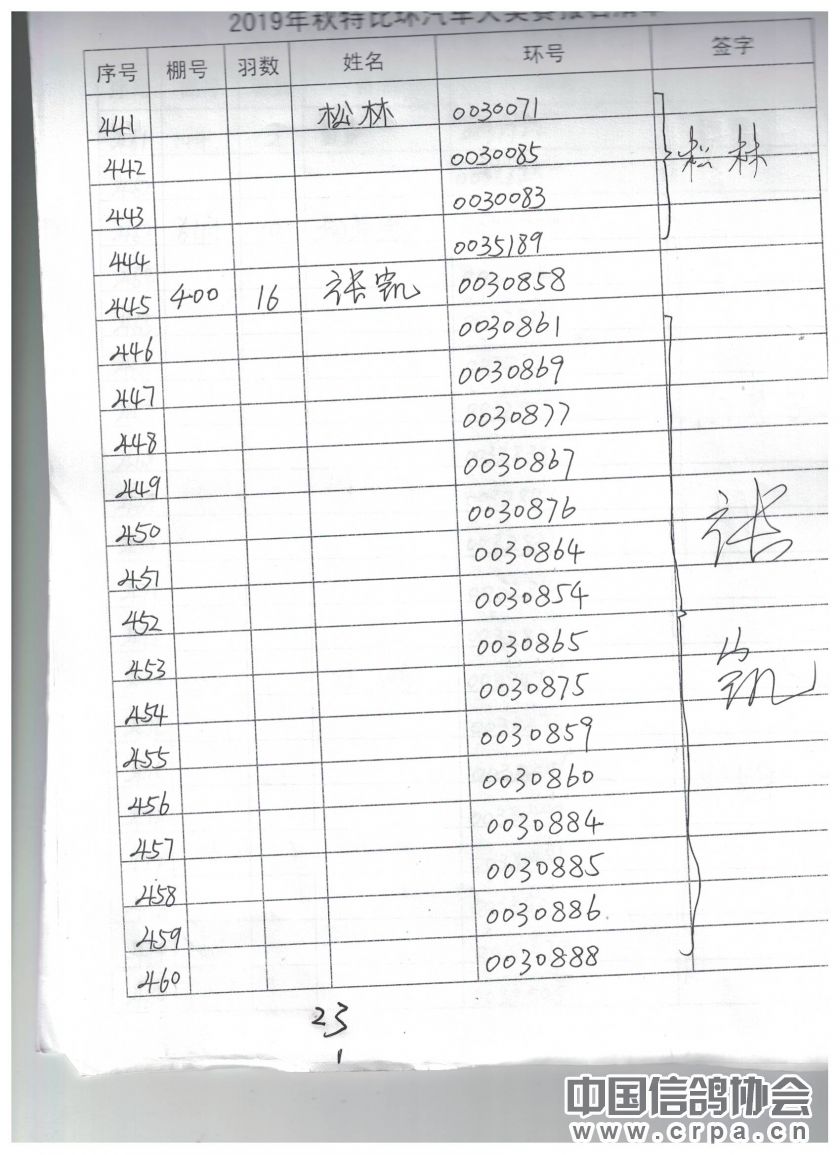 2019年秋特比环汽车大奖赛报名清单
序号 棚号 羽数 姓名 环号 签字
441 松林 0030071
442 0030085 松林
443 0030083
444 0035189
445 400 16 张凯 0030858
446 0030861
447 0030869
448 0030877
449 0030867
450 0030876
451 0030864 张
452 0030854
453 0030865
454 0030875 凯
455 0030859
456 0030860
457 0030884
458 0030885
459 0030886
460 0030888
23
1
中国信鸽协会
www.crpa.cn